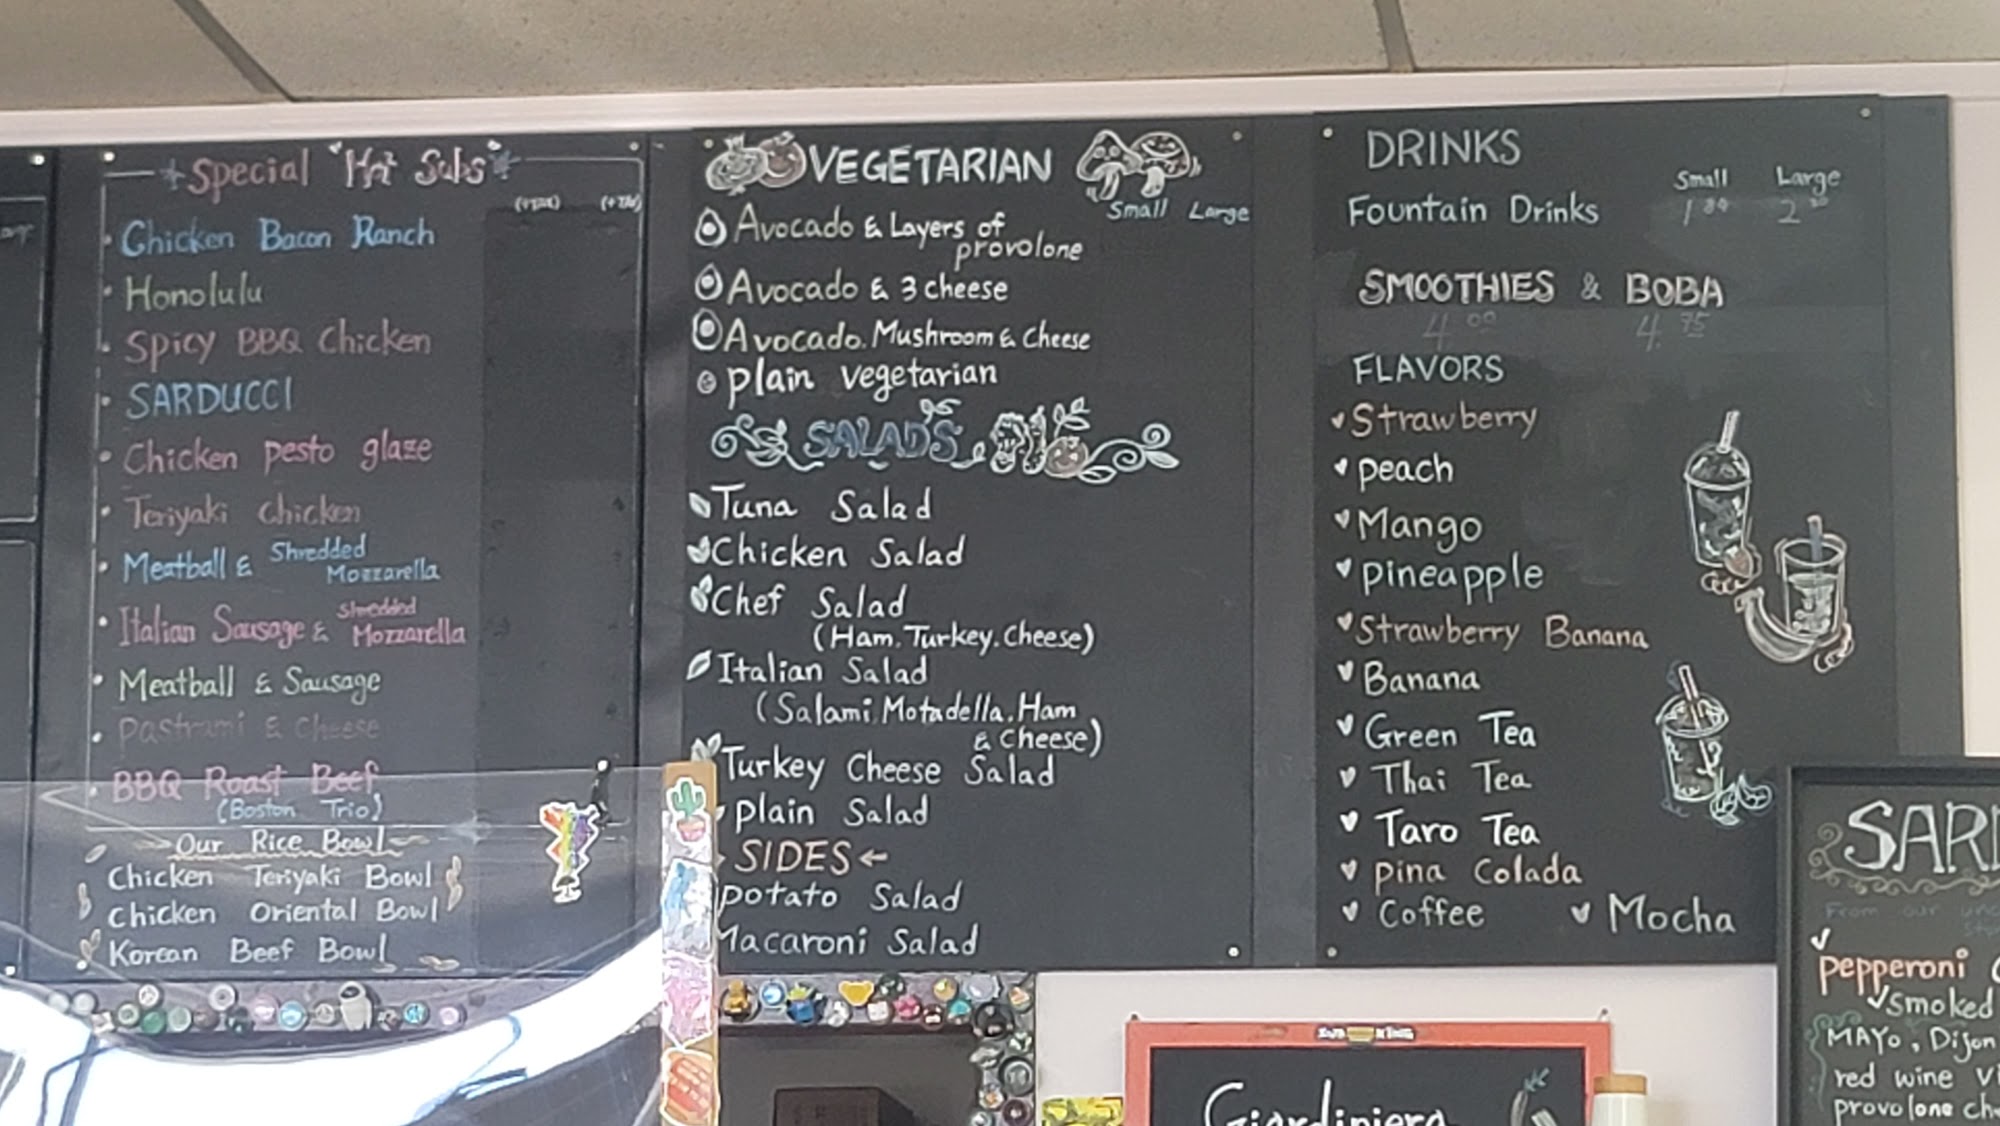 Special "Hot Subs"
Chicken Bacon Ranch
Honolulu
Spicy BBQ Chicken
SARDUCCI
Chicken pesto glaze
Teriyaki Chicken
Meatball & Shredded
Mozzarella
Italian Sausage & Shredded
Mozzarella
Meatball & Sausage
Pastrami & Cheese
BBQ Roast Beef
(Boston Trio)
Our Rice Bowl
Chicken Teriyaki Bowl
Chicken Oriental Bowl
Korean Beef Bowl
VEGETARIAN
Small Large
Avocado & Layers of
provolone
Avocado & 3 cheese
Avocado, Mushroom & Cheese
plain vegetarian
SALADS
Tuna Salad
Chicken Salad
Chef Salad
(Ham, Turkey, Cheese)
Italian Salad
(Salami, Motadella, Ham
& Cheese)
Turkey Cheese Salad
plain Salad
SIDES
potato Salad
Macaroni Salad
DRINKS
Small Large
Fountain Drinks
SMOOTHIES & BOBA
4.00 4.75
FLAVORS
Strawberry
peach
Mango
pineapple
Strawberry Banana
Banana
Green Tea
Thai Tea
Taro Tea
pina Colada
Coffee Mocha
Giardiniera
SAR
From our
pepperoni
smoked
MAYO, Dijon
red wine
provolone